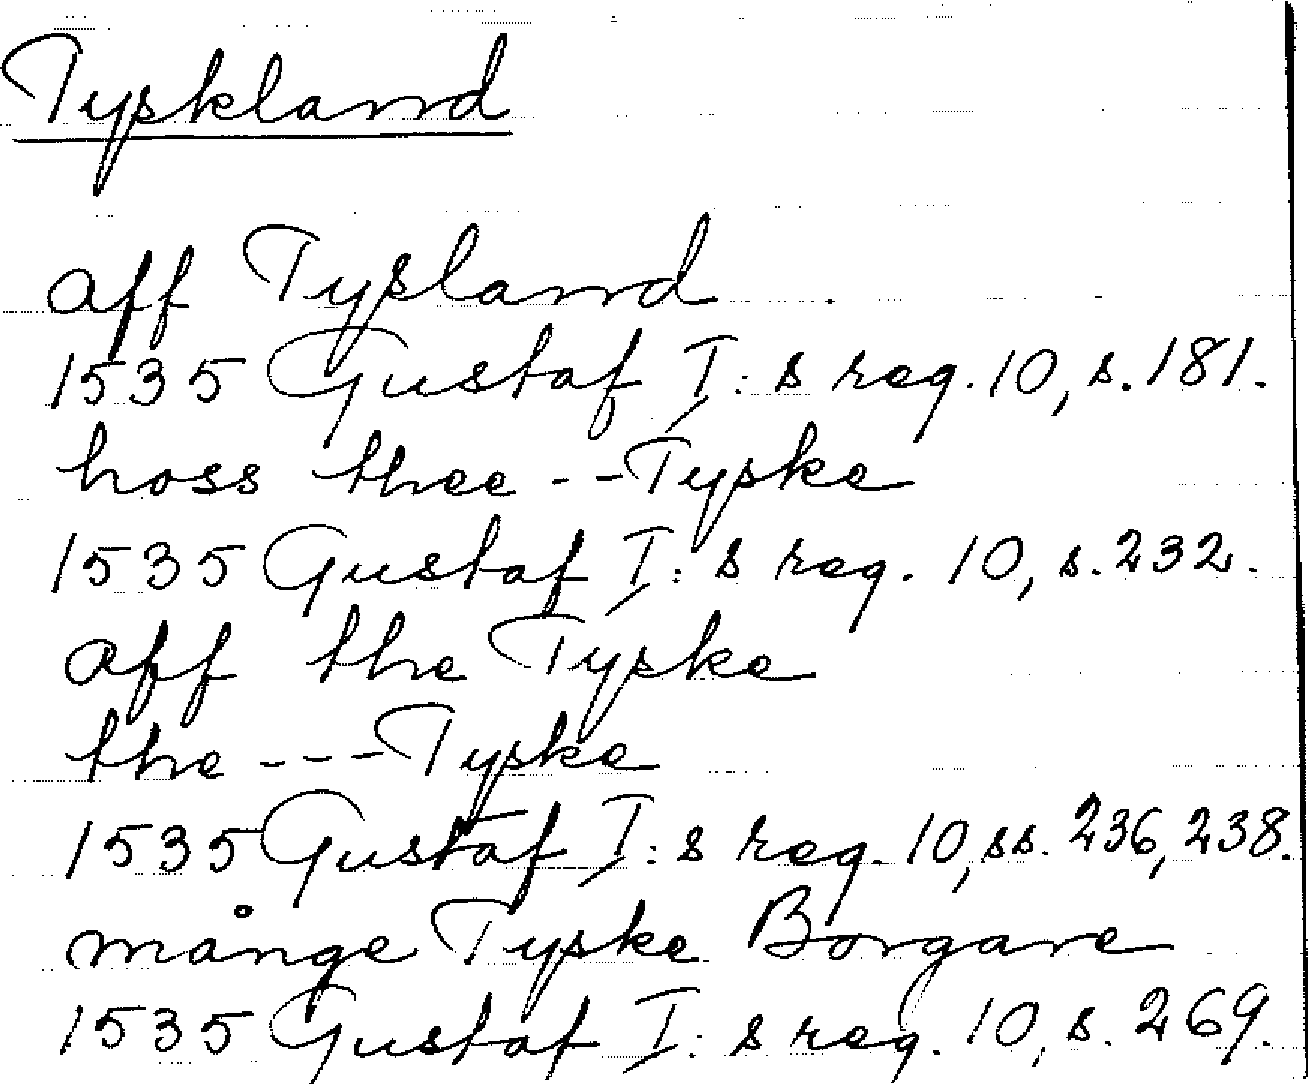 Tyskland
aff Tysland
1535 Gustaf I:s reg. 10, s. 181.
hoss thee --Tyske
1535 Gustaf I:s reg. 10, s. 232.
aff the Tyske
the --- Tyske
1535 Gustaf I:s reg. 10, ss. 236, 238.
månge Tyske Borgare
1535 Gustaf I:s reg. 10, s. 269.